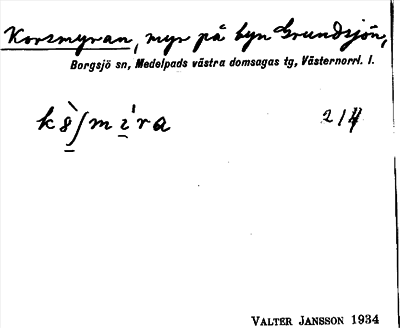 Korsmyran, myr på byn Grundsjön,
Borgsjö sn, Medelpads västra domsagas tg, Västernorrl. l.
214
VALTER JANSSON 1934